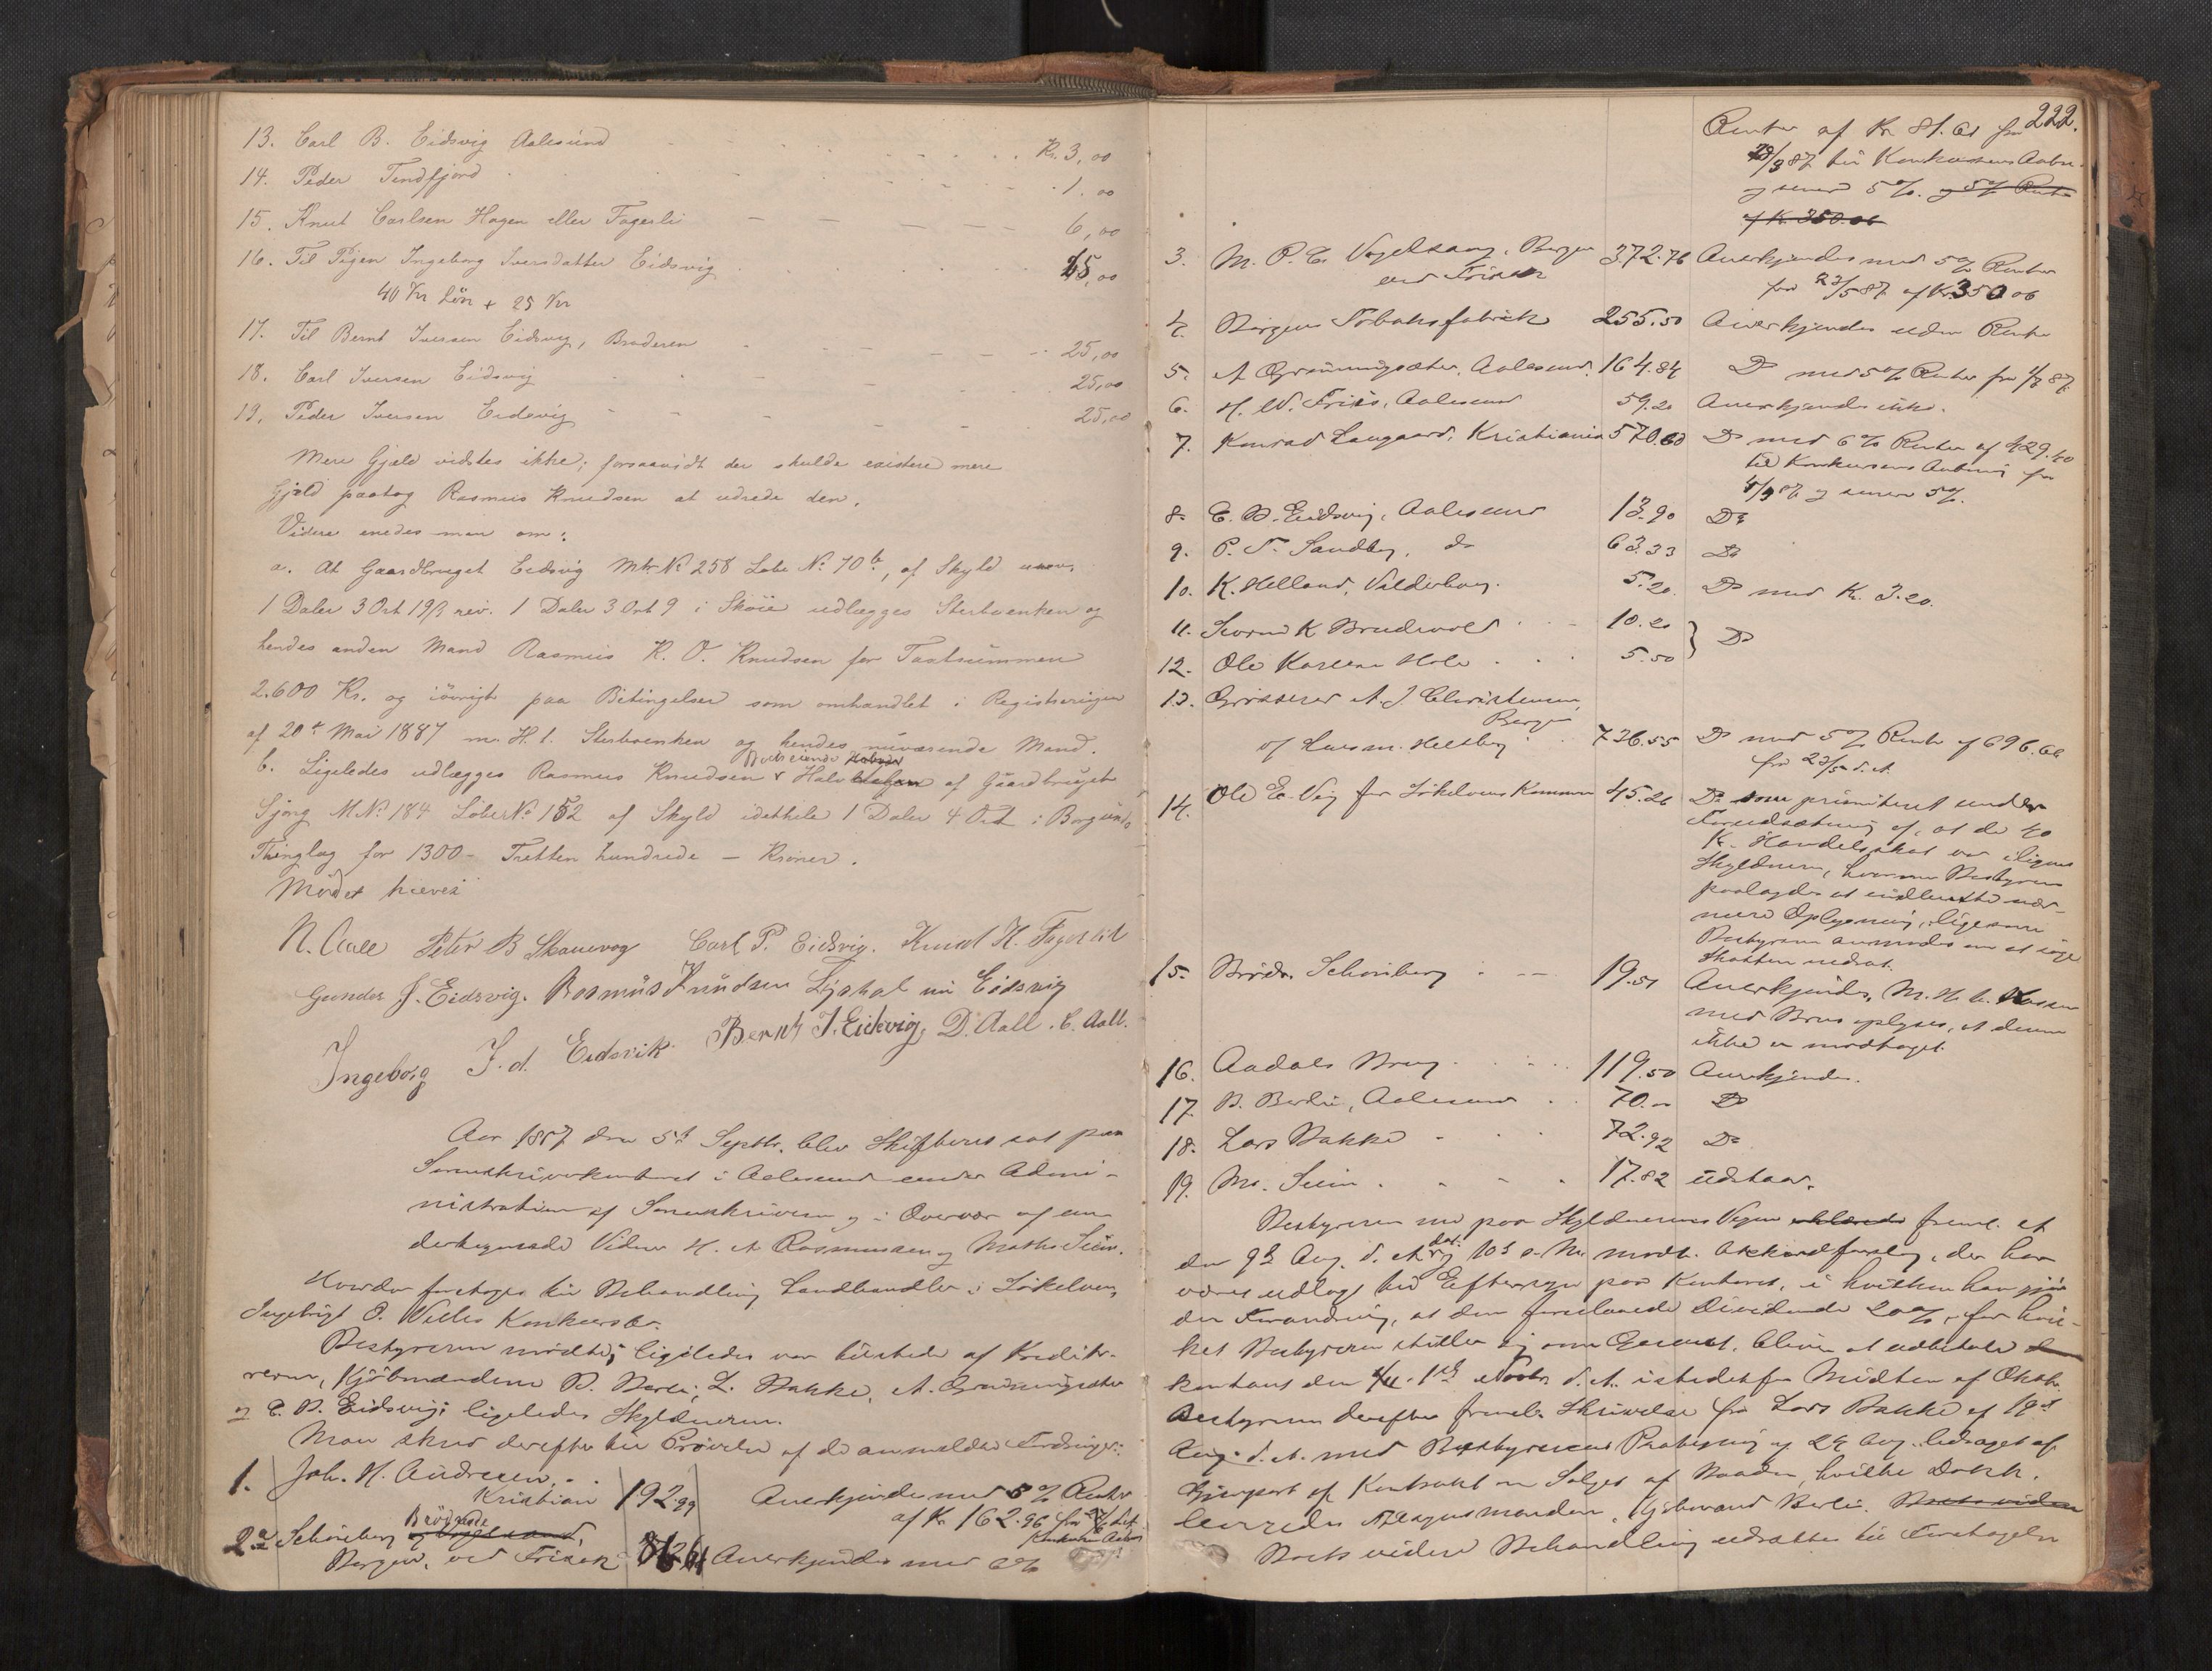 13. Carl B. Eidsvig Aalesund Kr. 3,00
14. Peder Tendfjord 1.00
15. Knut Carlsen Hagen eller Fagerli 6,00
16. Til Pigen Ingeborg Iversdatter Eidsvig 65,00
40 Kr Lön + 25 Kr
17. Til Bernt Iversen Eidsvig, Broderen 25,00
18. Carl Iversen Eidsvig 25,00
19. Peder Iversen Eidsvig 25,00
Mere Gjæld vidstes ikke; forsaavidt der skulde existere mere
Gjæld paatog Rasmus Knudsen at udrede den.
Videre enedes man om:
a. At Gaardbruget Eidsvig Mtr. No 258 Løbe No. 70b, af Skyld
1 Daler 3 Ort 19 β rev. 1 Daler 3 Ort 9 i Skoie udlægges Sterboenken og
hendes anden Mand Rasmus K. O. Knudsen for Taxtsummen
2.600 Kr. og iövrigt paa Betingelser som omhandlet i Registreringen
af 20de Mai 1887 m. H. t. Sterboenken og hendes nuværende Mand.
b. Ligeledes udlægges Rasmus Knudsen Halv af Gaardbruget
Sjong M No. 184 Löber No. 152 af Skyld idethele 1 Daler 4 Ort i Borgunds
Thinglag for 1300 - Tretten hundrede - Kroner.
Mödet hævet
N. Aall Peter B Skauevog Carl P. Eidsvig. Knut K. Fagerli
J. Eidsvig. Rasmüs Knudsen nü Eidsvig
Ingeborg I. d. Eidsvik Bernt I. Eidsvig, D. Aall. C. Aall.
Aar 1887 den 5te Septbr. blev Skifteret sat paa
Sorenskriverkontoret i Aalesund under Admi-
nistration af Sorenskriveren og i Overvær af un-
dertegnede Vidner H. A Rasmussen og Mathis Seim.
Hvorda foretoges til Behandling Landhandler i Sökelven,
Ingebrigt O. Velles Konkursbo.
Bestyreren mödte; ligeledes var tilstede af Kredito-
rerne, Kjöbmændene B. Berli, L. Bakke, A. Grönningsæter
og C. B. Eidsvig; ligeledes Skyldneren.
Man skred derefter til Prövelse af de anmeldte Fordringer:
1. Joh. H. Andresen, Kristiania 192.99 Anerkjendes med 5 % Renter
af Kr 162.96 fra
2. Brödrene Schönberg
Bergen, ved Frisak Anerkjendes med 6%
222.
Renter af Kr 81.61 fra
til Konkursens Aabn.
og senere 5 %. og 5% Rente
af Kr. 350.06
3. M. P. C. Vogelsang, Bergen 372.76 Anerkjendes med 5% Renter
ved Frisak fra 23/5 87 af Kr 350 06
4. Bergens Tobaksfabrik 255.50 Anerkjendes uden Rente
5. A Grönningsæter, Aalesund. 164.84 Do med 5% Renter fra 87.
6. H. W. Friis, Aalesund 59.20 Anerkjendes ikke.
7. Konrad Langaard, Kristiania 570.60 Do med 6% Renter af 429.40
til Konkursens Aabning fra
4/3 87 og senere 5%.
8. C. B. Eidsvig, Aalesund 13.90 Do
9. P. T. Sandby, do 63.33 Do
10. K. Helland, Vilderhaug. 5.20. Do med Kr. 3.20.
11. Sivert K Brudevold 10.20 } Do
12. Ole Karlsen Hole 5.50
13. Grosserer A. J. Christensen,
Bergen
v/ Heltberg 736.55 Do med 5% Rente af 696.66
fra 23/5 d. A.
14. Ole E. Vig for Sökelvens Kommune 45.26 Do som prioriteret under
Forudsætning af, at de 40
Kr. Handelsskat var ilignet
Skyldneren, hvorom Bestyreren
paalagdes at indhente nær-
mere Oplysning, ligesom
Bestyreren anmodes om at söge
Skatten nedsat.
15. Brödr. Schönberg 19.51 Anerkjendes, M. H. t. Kassen
med Brus oplyses, at denne
ikke er modtaget.
16. Aadals Brug 119.50 Anerkjendes.
17. B. Berli, Aalesund 70.- Do
18. Lars Bakke 72.92 Do
19. Ms. Seim 17.82 udstaar.
Bestyreren nu paa Skyldnerens Vegne erklærede freml. et
den 9de Aug. d. A. og 10de s. M. modt. Akkordforslag, der har
været udlagt til Eftersyn paa Kontoret, i hvilken han gjör
den Forandring, at den foreslaaede Dividende 20%, for hvil-
ket Bestyreren stiller sig som Garant, bliver at udbetale
kontant den 1ste Novbr. d. A. istedetfor Midten af Oktbr.
Bestyreren derefter freml. Skrivelse fra Lars Bakke af 19de
Aug. d. A. med Bestyrerens Paategning af 24 Aug. ledsaget af
Gjenpart af Kontrakt om Salget af Baaden, hvilke Dokk.
leveredes Tilsynsmanden, Kjöbmand Berli. Boets viden
Boets videre Behandling udsattes til Foretagelse